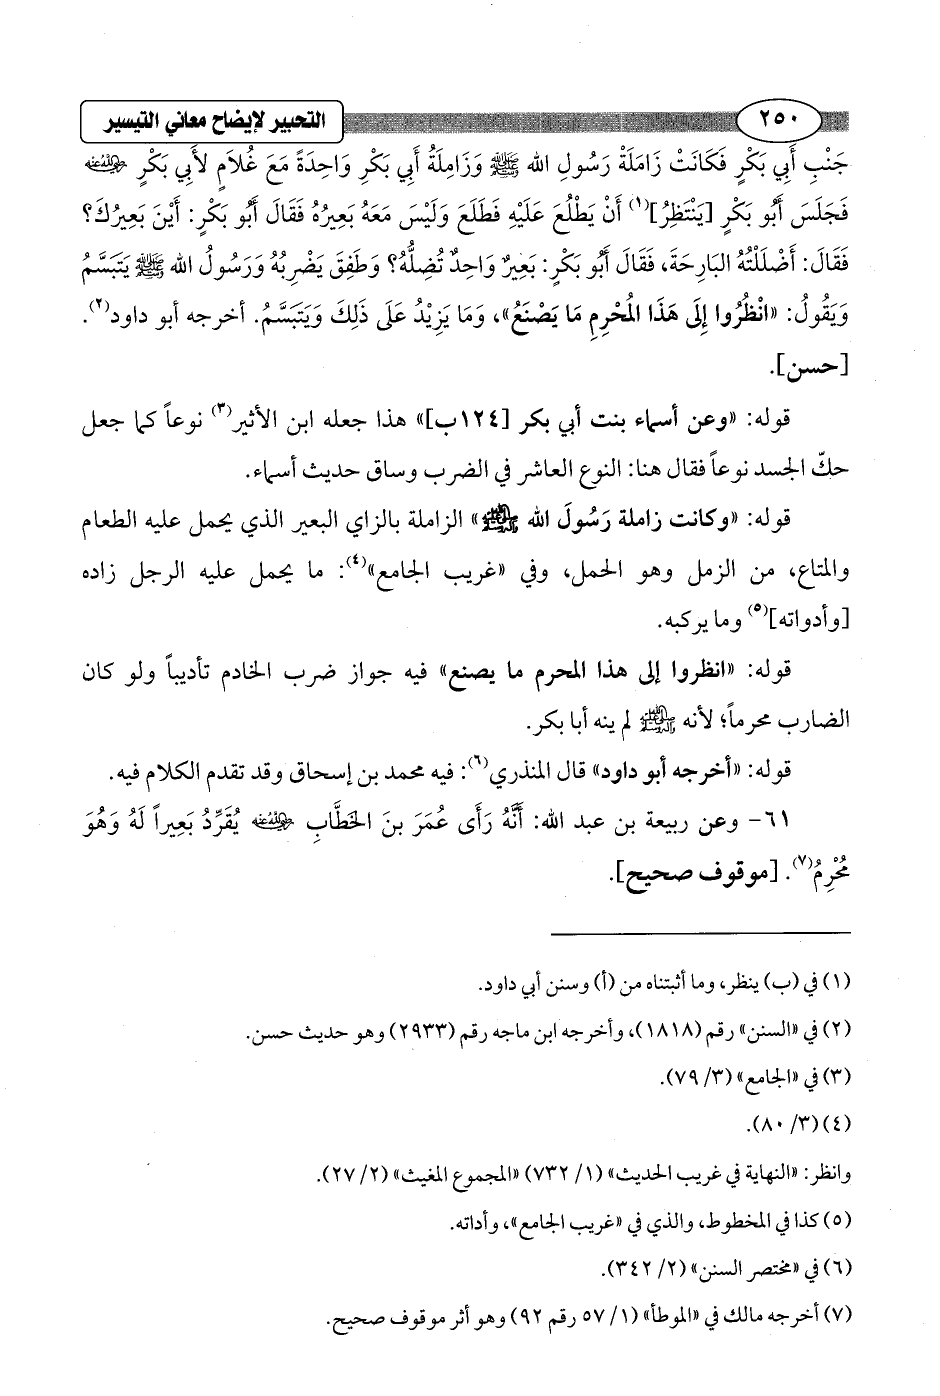 ٢٥٠ التحبير لإيضاح معاني التيسير
جَنْبِ أَبِي بَكْرٍ فَكَانَتْ زَامَلَةْ رَسُولِ الله ﷺ وَزَامِلَةُ أَبِي بَكْرِ وَاحِدَةً مَعَ غُلَامٍ لأَبِي بَكْرٍ رضي الله عنه
فَجَلَسَ أَبُو بَكْرٍ [يَنْتَظِرُ](١) أَنْ يَطْلُعَ عَلَيْهِ فَطَلَعَ وَلَيْسَ مَعَهُ بَعِيرُهُ فَقَالَ أَبُو بَكْرٍ: أَيْنَ بَعِيرُكَ؟
فَقَالَ: أَضْلَلْتُهُ البَارِحَةَ، فَقَالَ أَبُو بَكْرٍ: بَعِيرٌ وَاحِدٌ تُضِلُّهُ؟ وَطَفِقَ يَضْرِبُهُ وَرَسُولُ الله ﷺ يَتَبَسَّمُ
وَيَقُولُ: «انْظُرُوا إِلَى هَذَا المُحْرِمِ مَا يَصْنَعُ»، وَمَا يَزِيْدُ عَلَى ذَلِكَ وَيَتَبَسَّمُ. أخرجه أبو داود(٢).
[حسن].
قوله: «وعن أسماء بنت أبي بكر [١٢٤ب]» هذا جعله ابن الأثير(٣) نوعاً كما جعل
حكّ الجسد نوعاً فقال هنا: النوع العاشر في الضرب وساق حديث أسماء.
قوله: «وكانت زاملة رَسُولَ الله ﷺ» الزاملة بالزاي البعير الذي يحمل عليه الطعام
والمتاع، من الزمل وهو الحمل، وفي «غريب الجامع»(٤): ما يحمل عليه الرجل زاده
[وأدواته](٥) وما يركبه.
قوله: «انظروا إلى هذا المحرم ما يصنع» فيه جواز ضرب الخادم تأديباً ولو كان
الضارب محرماً؛ لأنه ﷺ لم ينه أبا بكر.
قوله: «أخرجه أبو داود» قال المنذري(٦): فيه محمد بن إسحاق وقد تقدم الكلام فيه.
٦١- وعن ربيعة بن عبد الله: أَنَّهُ رَأَى عُمَرَ بنَ الخَطَّابِ رضي الله عنه يُقَرِّدُ بَعِيراً لَهُ وَهُوَ
مُحْرِمُ(٧). [موقوف صحيح].
(١) في (ب) ينظر، وما أثبتناه من (أ) وسنن أبي داود.
(٢) في «السنن» رقم (١٨١٨)، وأخرجه ابن ماجه رقم (٢٩٣٣) وهو حديث حسن.
(٣) في «الجامع» (٣/ ٧٩).
(٤) (٣/ ٨٠).
وانظر: «النهاية في غريب الحديث» (١/ ٧٣٢) «المجموع المغيث» (٢/ ٢٧).
(٥) كذا في المخطوط، والذي في «غريب الجامع»، وأداته.
(٦) في «مختصر السنن» (٢/ ٣٤٢).
(٧) أخرجه مالك في «الموطأ» (١/ ٥٧ رقم ٩٢) وهو أثر موقوف صحيح.